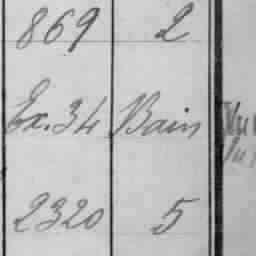 869 2
Ex. 34 Bain
2320 5